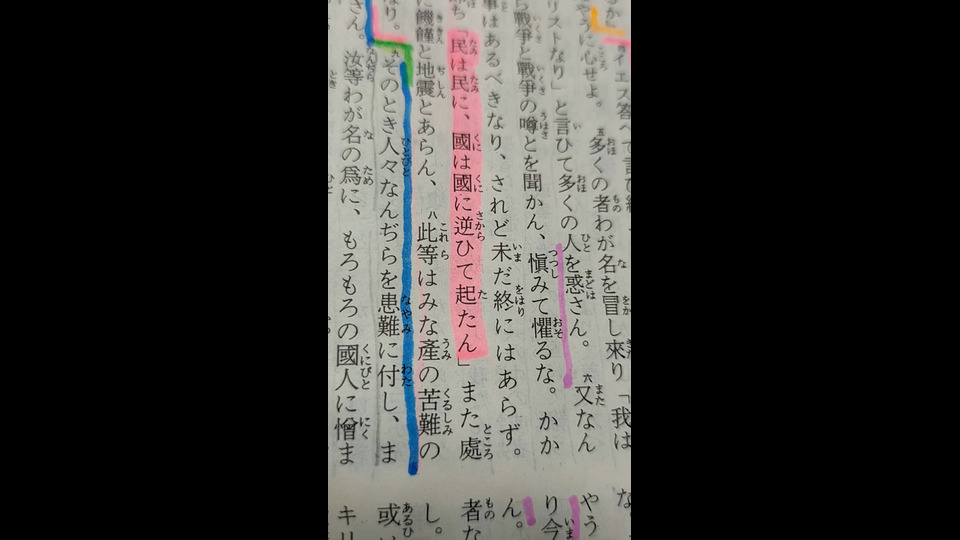 イエス答へて言ひ
るか
やうに心せよ。五多くの者わが名を冒し來り「我は
リストなり」と言ひて多くの人を惑さん。六又なん
ら戰爭と戰爭の噂とを聞かん、愼みて懼るな。かか
事はあるべきなり、されど未だ終にはあらず。
ち「民は民に、國は國に逆ひて起たん」また處
に饑饉と地震とあらん、八此等はみな產の苦難の
なり。
九そのとき人々なんぢらを患難に付し、ま
さん。汝等わが名の爲に、もろもろの國人に憎ま
な
やう
り今
ん。
者な
し。
或
キリ